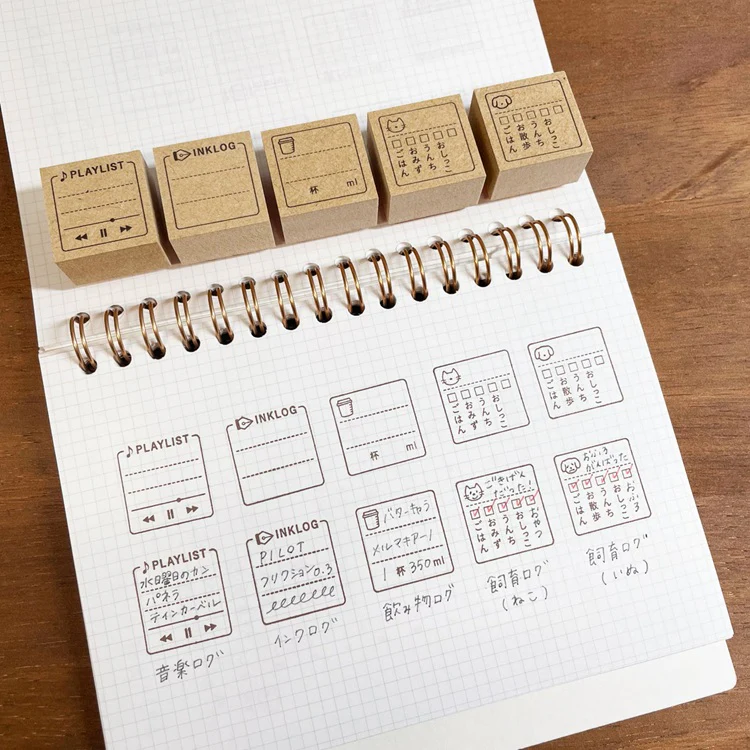 PLAYLIST
INKLOG
杯 ml
ごはん
おみず
うんち
おしっこ
ごはん
お散歩
うんち
おしっこ
PLAYLIST
INKLOG
杯 ml
ごはん
おみず
うんち
おしっこ
ごはん
お散歩
うんち
おしっこ
PLAYLIST
水曜日のカン
パネラ
ティンカーベル
音楽ログ
INKLOG
PILOT
フリクション0.3
インクログ
バターキャラ
メルマキアート
1杯350ml
飲み物ログ
ごきげん
だった!
ごはん
おみず
うんち
おしっこ
おやつ
飼育ログ
(ねこ)
おふろ
がんばった
ごはん
お散歩
うんち
おしっこ
おふろ
飼育ログ
(いぬ)